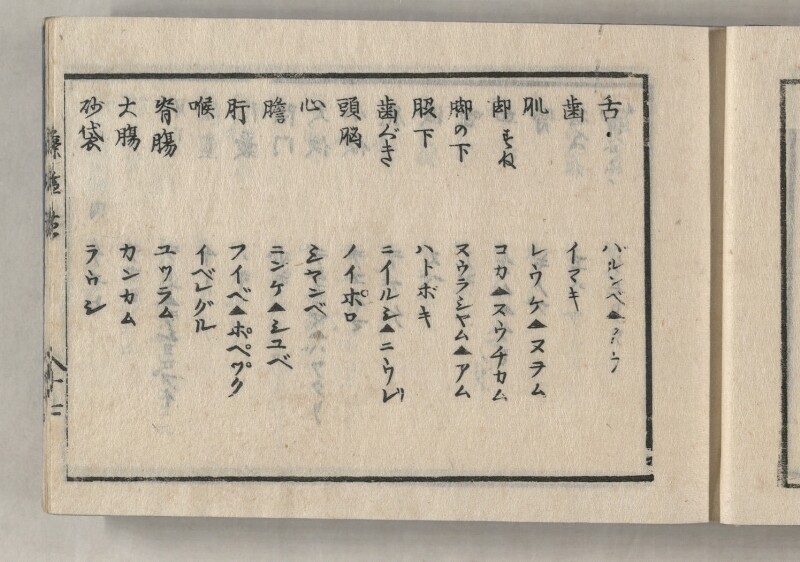 舌 ハルンベ▲
歯 イマキ
肌 レウケ▲ヌヲム
脚すね コカ▲スウチカム
脚の下 スウラシヤム▲アム
股下 ハトボキ
歯ぐき ニイルシ▲ニウレ
頭脳 ノイポロ
心 シヤンベ
膽 ニンケ▲シユベ
肝 フイベ▲ポペツク
喉 イベレグル
脊膓 ユツラム
大膓 カンカム
砂袋 ラウシ